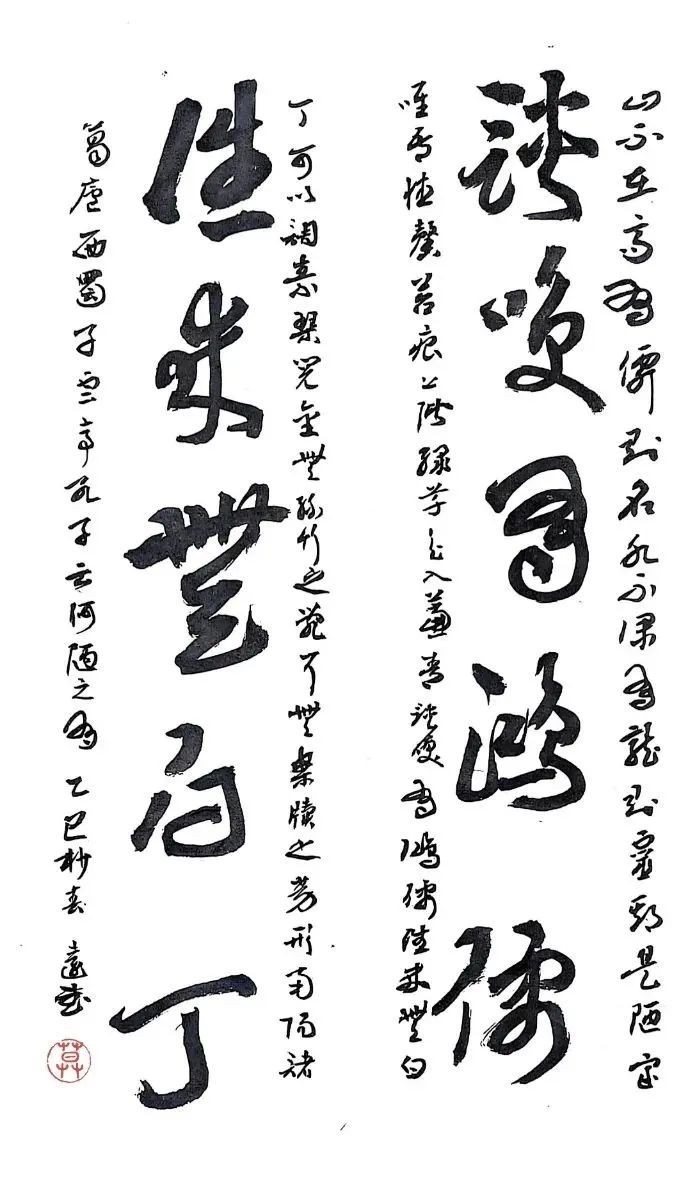 山不在高有僊則名水不深有龍則靈斯是陋室
談笑有鴻儒
唯吾德馨苔痕上階綠草色入簾青談笑有鴻儒往來無白
丁可以調素琴閱金無絲竹之亂耳無案牘之勞形南陽諸
往來無白丁
葛廬西蜀子雲亭孔子云何陋之有 乙巳杪春 遠